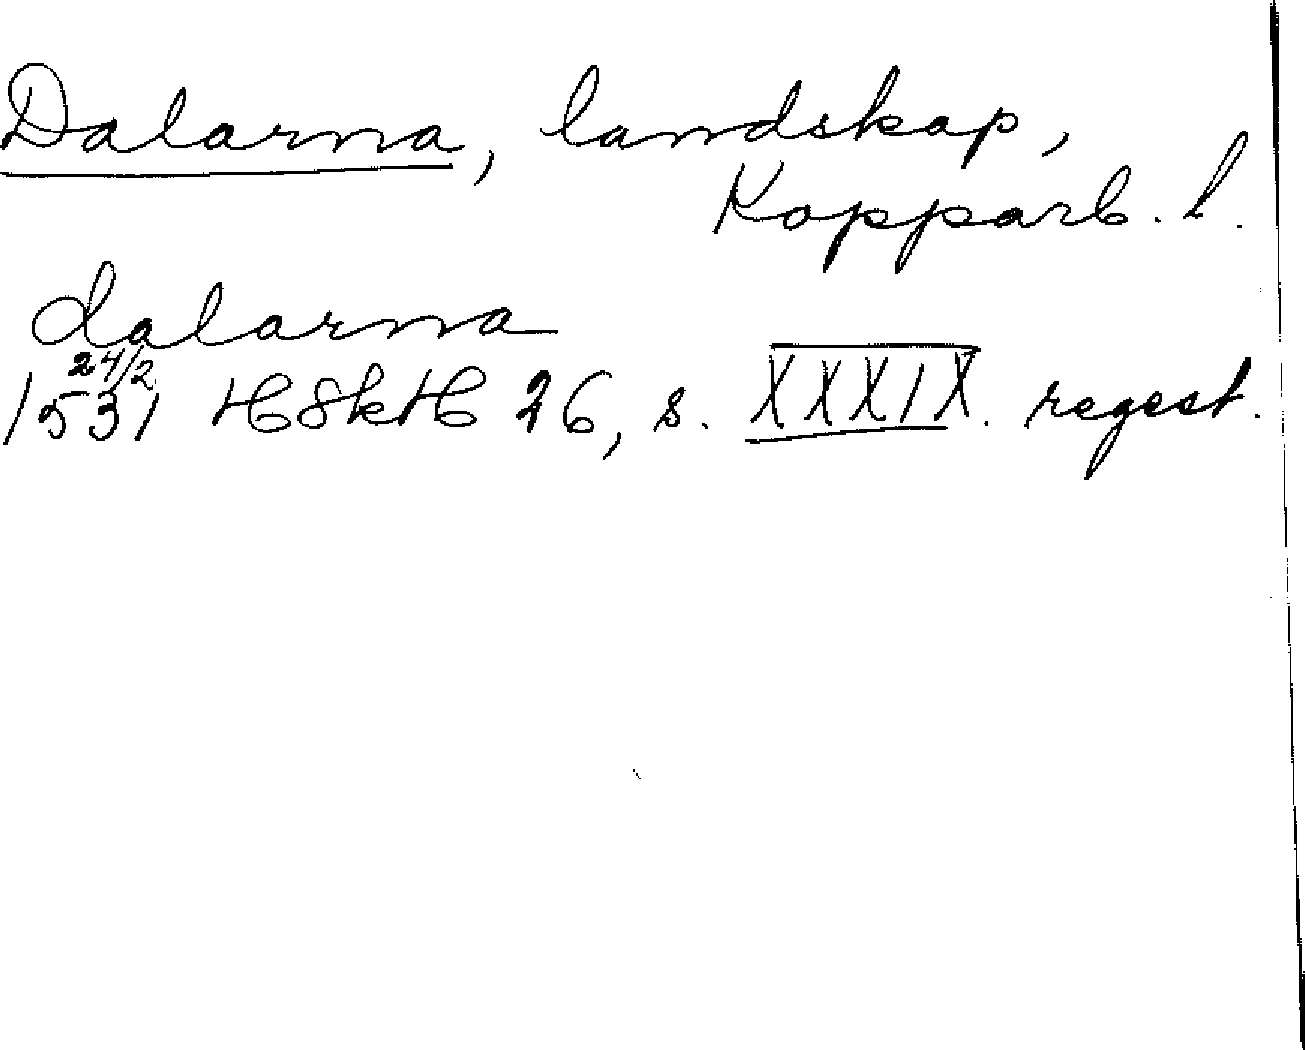 Dalarna, landskap,
Kopparb. l.
dalarna
24/2
1531 HSkH 26, s. XXXIX. regest.